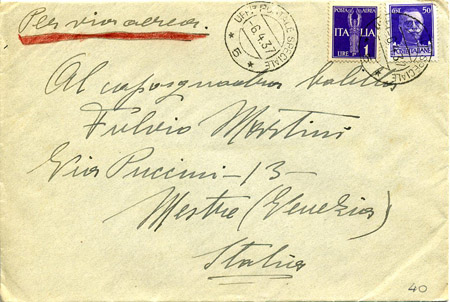 Per via aerea.
UFF. POSTALE SPECIALE
6.4.37
* 5 *
POSTA AEREA
ITALIA
LIRE 1
CENT. 50
POSTE ITALIANE
SPECIALE
Al caposquadra
Fulvio Martini
Via Puccini - 13 -
Mestre (Venezia)
Italia
40